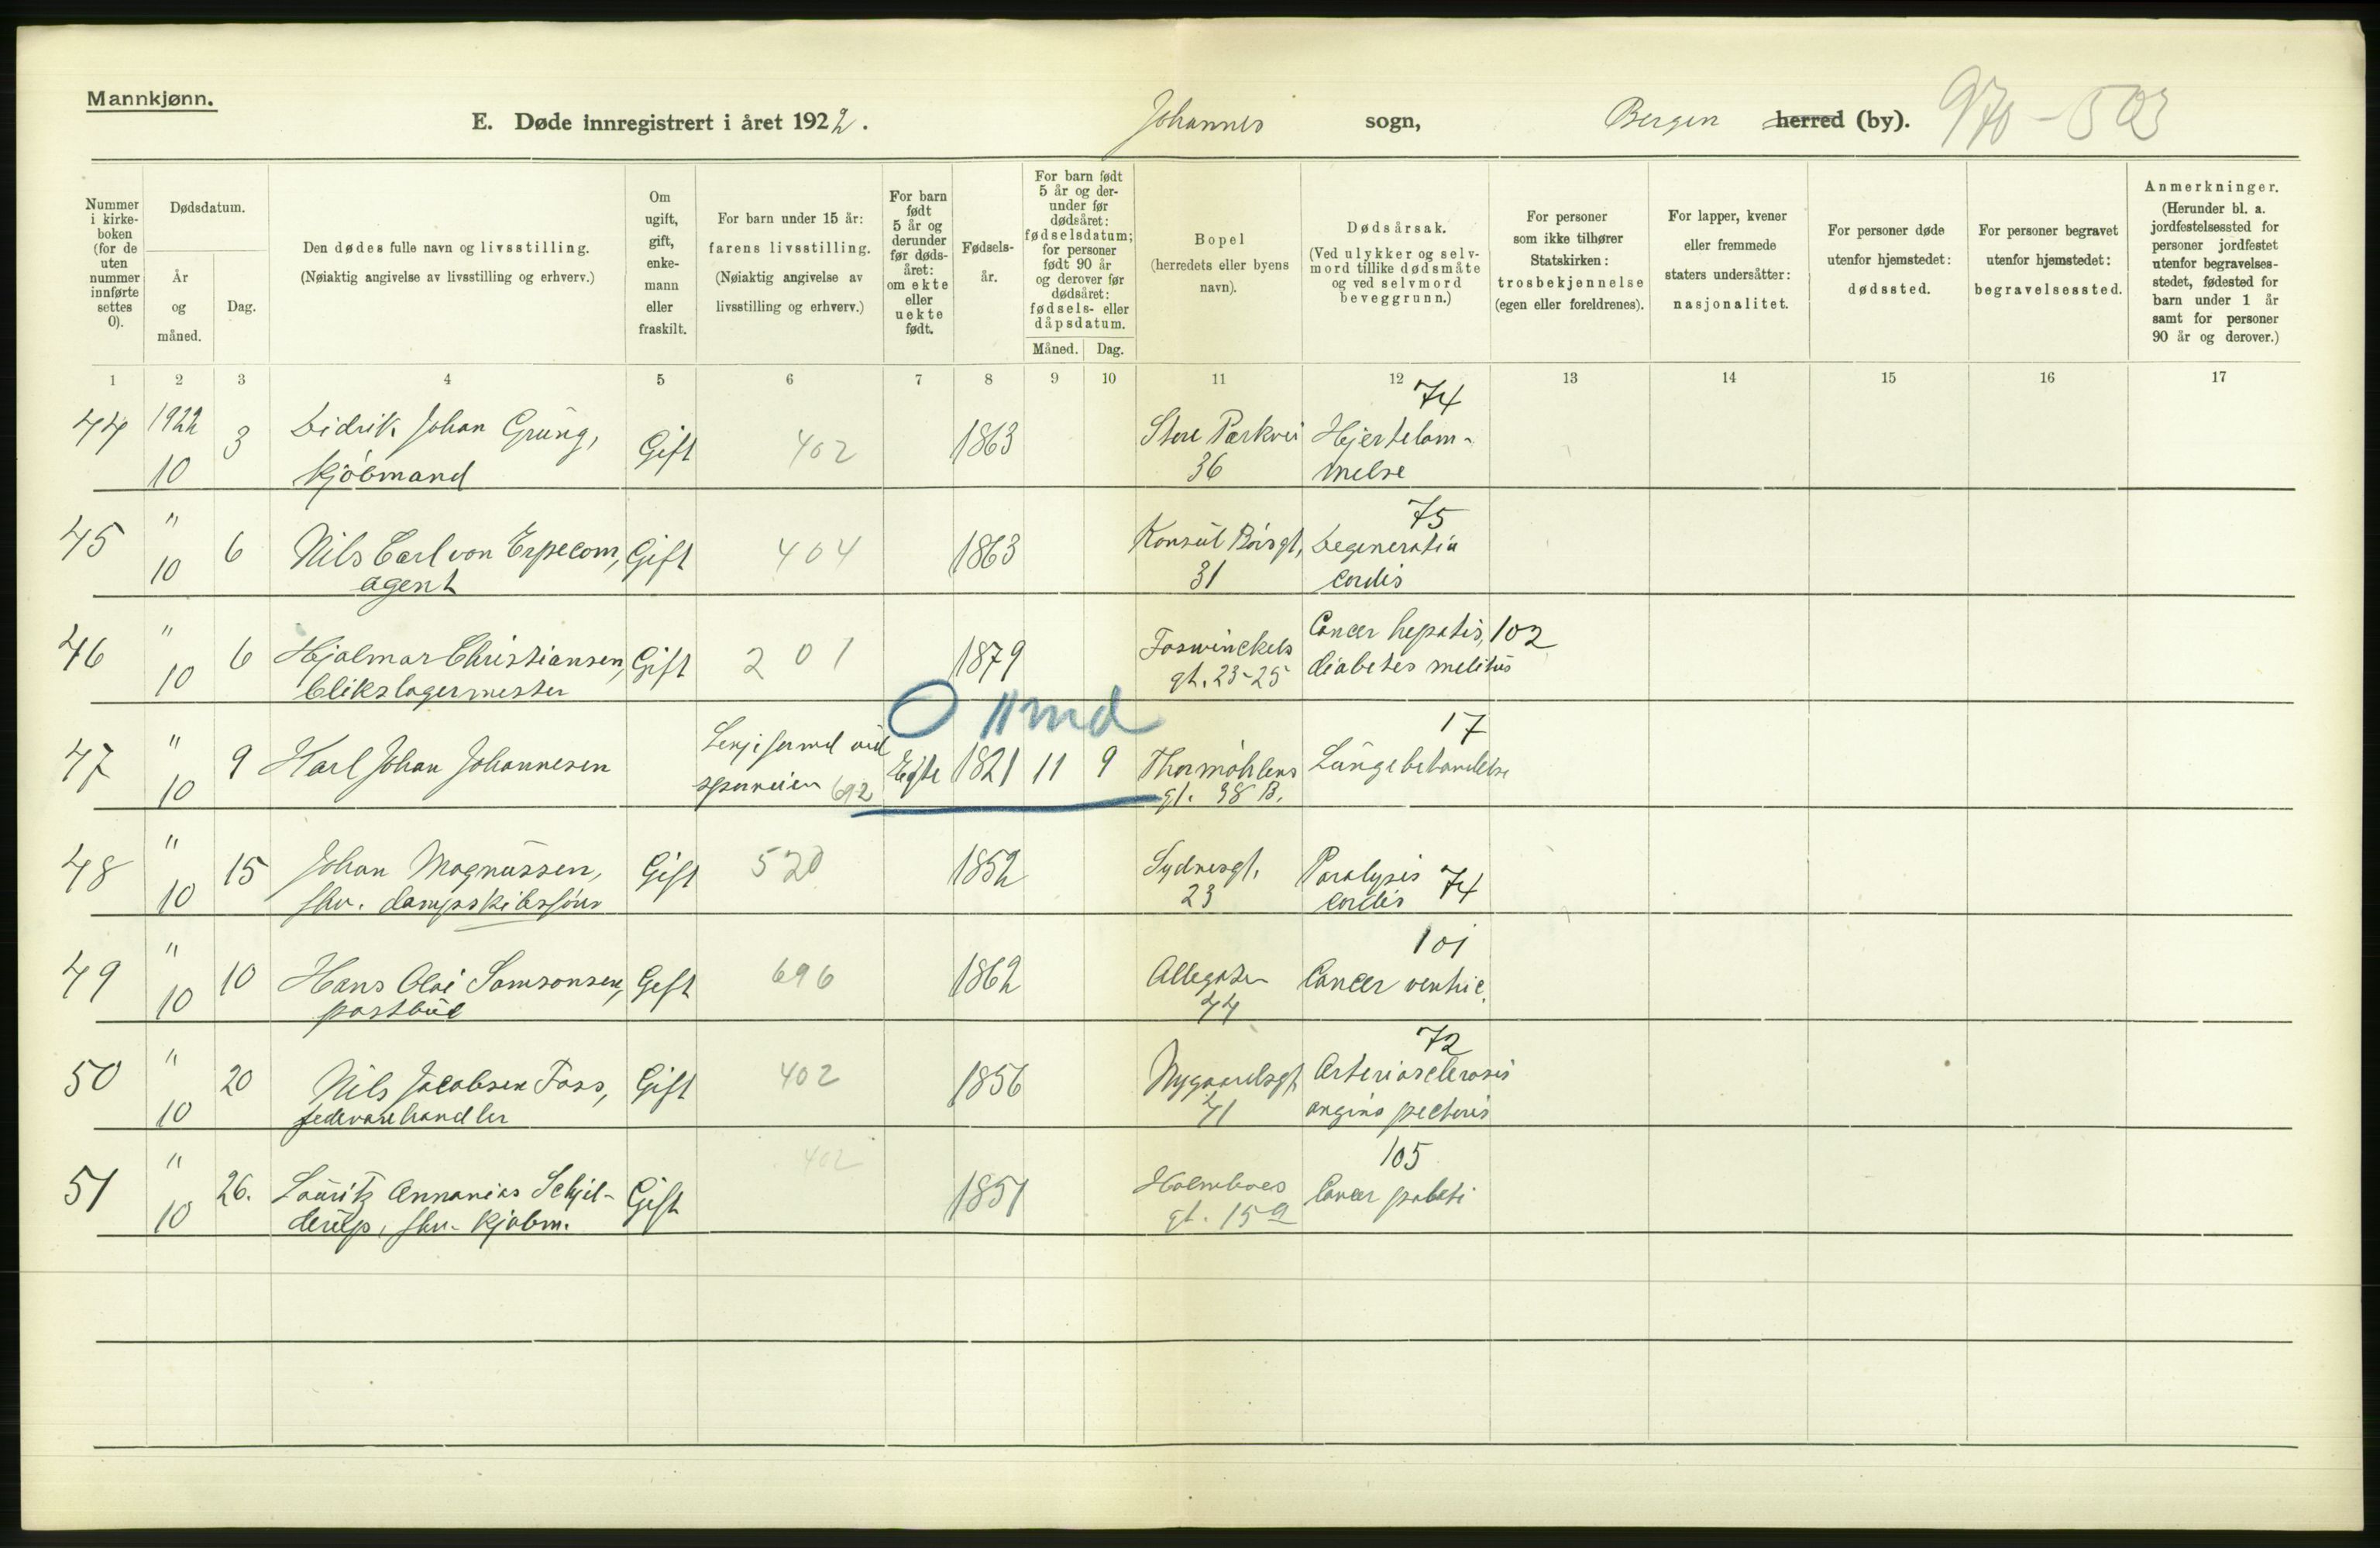 Mannkjønn.
E. Døde innregistrert i året 1922.
Johannes sogn,
Bergen herred (by).
970-503
Nummer i kirkeboken (for de uten nummer innførte settes 0).
Dødsdatum.
År og måned.
Dag.
Den dødes fulle navn og livsstilling.
(Nøiaktig angivelse av livsstilling og erhverv.)
Om ugift, gift, enkemann eller fraskilt.
For barn under 15 år: farens livsstilling. (Nøiaktig angivelse av livsstilling og erhverv.)
For barn født 5 år og derunder før dødsåret: om ekte eller uekte født.
Fødselsår.
For barn født 5 år og derunder før dødsåret: fødselsdatum; for personer født 90 år og derover før dødsåret: fødsels- eller dåpsdatum.
Måned. Dag.
Bopel (herredets eller byens navn).
Dødsårsak. (Ved ulykker og selvmord tillike dødsmåte og ved selvmord beveggrunn.)
For personer som ikke tilhører Statskirken: trosbekjennelse (egen eller foreldrenes).
For lapper, kvener eller fremmede staters undersåtter: nasjonalitet.
For personer døde utenfor hjemstedet: dødssted.
For personer begravet utenfor hjemstedet: begravelsessted.
Anmerkninger. (Herunder bl. a. jordfestelsessted for personer jordfestet utenfor begravelsesstedet, fødested for barn under 1 år samt for personer 90 år og derover.)
1 2 3 4 5 6 7 8 9 10 11 12 13 14 15 16 17
44 1922 10 3 Didrik Johan Grung, kjøbmand Gift 402 1863 Store Parkvei 36 74 Hjertelammelse
45 " 10 6 Nils Carl von Erpecom, agent Gift 404 1863 Konsul Børsgt, 31 75 Degeneratio cordis
46 " 10 6 Hjalmar Christiansen, blikslagermester Gift 201 1879 Foswinckels gt. 23-25 Cancer hepatis, 102 diabetes melitus
0 11 md
47 " 10 9 Karl Johan Johannesen sporveien 692 Egte 1821 11 9 Thormøhlens gt. 38 B. 17 Lungebetændelse
48 " 10 15 Johan Magnussen, fhv. dampskibsfører Gift 520 1852 Sydnesgt. 23 Paralysis cordis 74
49 " 10 10 Hans Olai Samsonsen, postbud Gift 696 1862 Allegaten 44 101 Cancer ventric.
50 " 10 20 Nils Jacobsen Foss, fedevarehandler Gift 402 1856 Nygaardsgt 41 72 Arteriosclerosis angina pectoris
51 " 10 26. Lauritz Annanias Schjelderup, fhv. kjøbm. Gift 402 1851 Holmboes gt. 15 a 105 Cancer